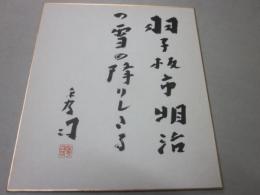 羽子板市明治
の雪の降りしきる